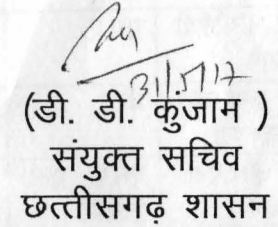 31/5/17
(डी. डी. कुंजाम )
संयुक्त सचिव
छत्तीसगढ़ शासन